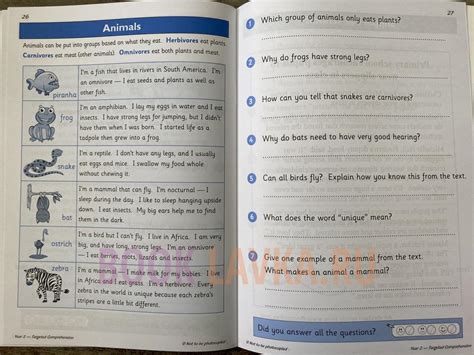 26
Animals
Animals can be put into groups based on what they eat. Herbivores eat plants.
Carnivores eat meat (other animals). Omnivores eat both plants and meat.
piranha
I'm a fish that lives in rivers in South America. I'm
an omnivore — I eat seeds and plants as well as
other fish.
frog
I'm an amphibian. I lay my eggs in water and I eat
insects. I have strong legs for jumping, but I didn't
have them when I was born. I started life as a
tadpole then grew into a frog.
snake
I'm a reptile. I don't have any legs, and I usually
eat eggs and mice. I swallow my food whole
without chewing it.
bat
I'm a mammal that can fly. I'm nocturnal — I
sleep during the day. I like to sleep hanging upside
down. I eat insects. My big ears help me to find
them in the dark.
ostrich
I'm a bird but I can't fly. I live in Africa. I am very
big, and have long, strong legs. I'm an omnivore
— I eat berries, roots, lizards and insects.
zebra
I'm a mammal. I make milk for my babies. I live
in Africa and eat grass. I'm a herbivore. Every
zebra in the world is unique because each zebra's
stripes are a little bit different.
Year 2 — Targeted Comprehension
© Not to be photocopied
27
1 Which group of animals only eats plants?
2 Why do frogs have strong legs?
3 How can you tell that snakes are carnivores?
4 Why do bats need to have very good hearing?
5 Can all birds fly? Explain how you know this from the text.
6 What does the word "unique" mean?
7 Give one example of a mammal from the text.
What makes an animal a mammal?
Did you answer all the questions?
© Not to be photocopied
Year 2 — Targeted Comprehension
LAVKA.RU